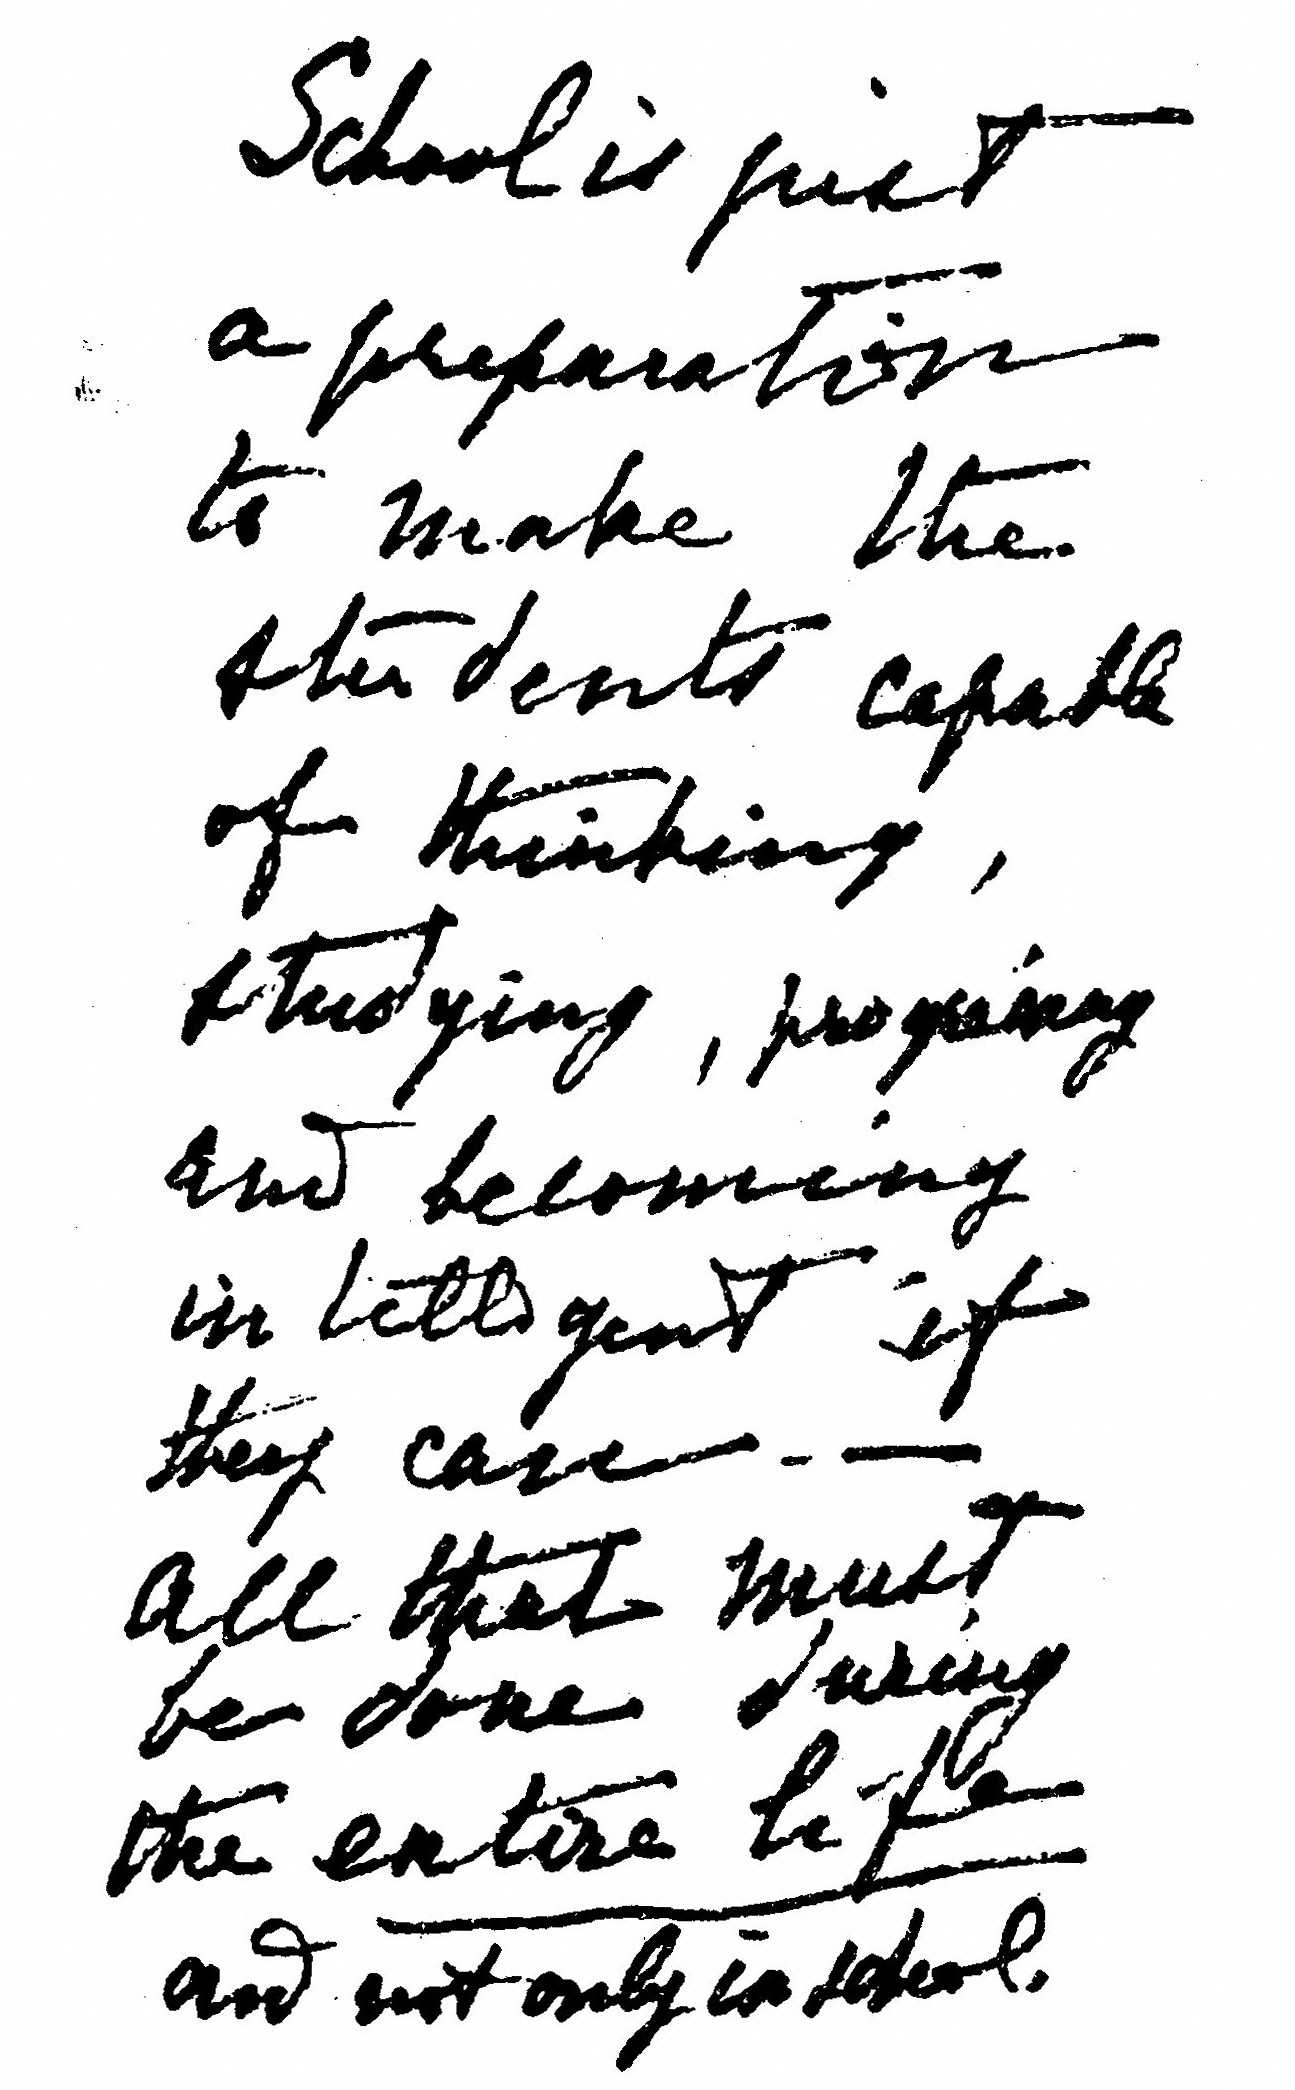 School is just
a preparation
to make the
students capable
of thinking,
studying, progressing
and becoming
intelligent if
they can - —
all that must
be done during
the entire life
and not only in school.